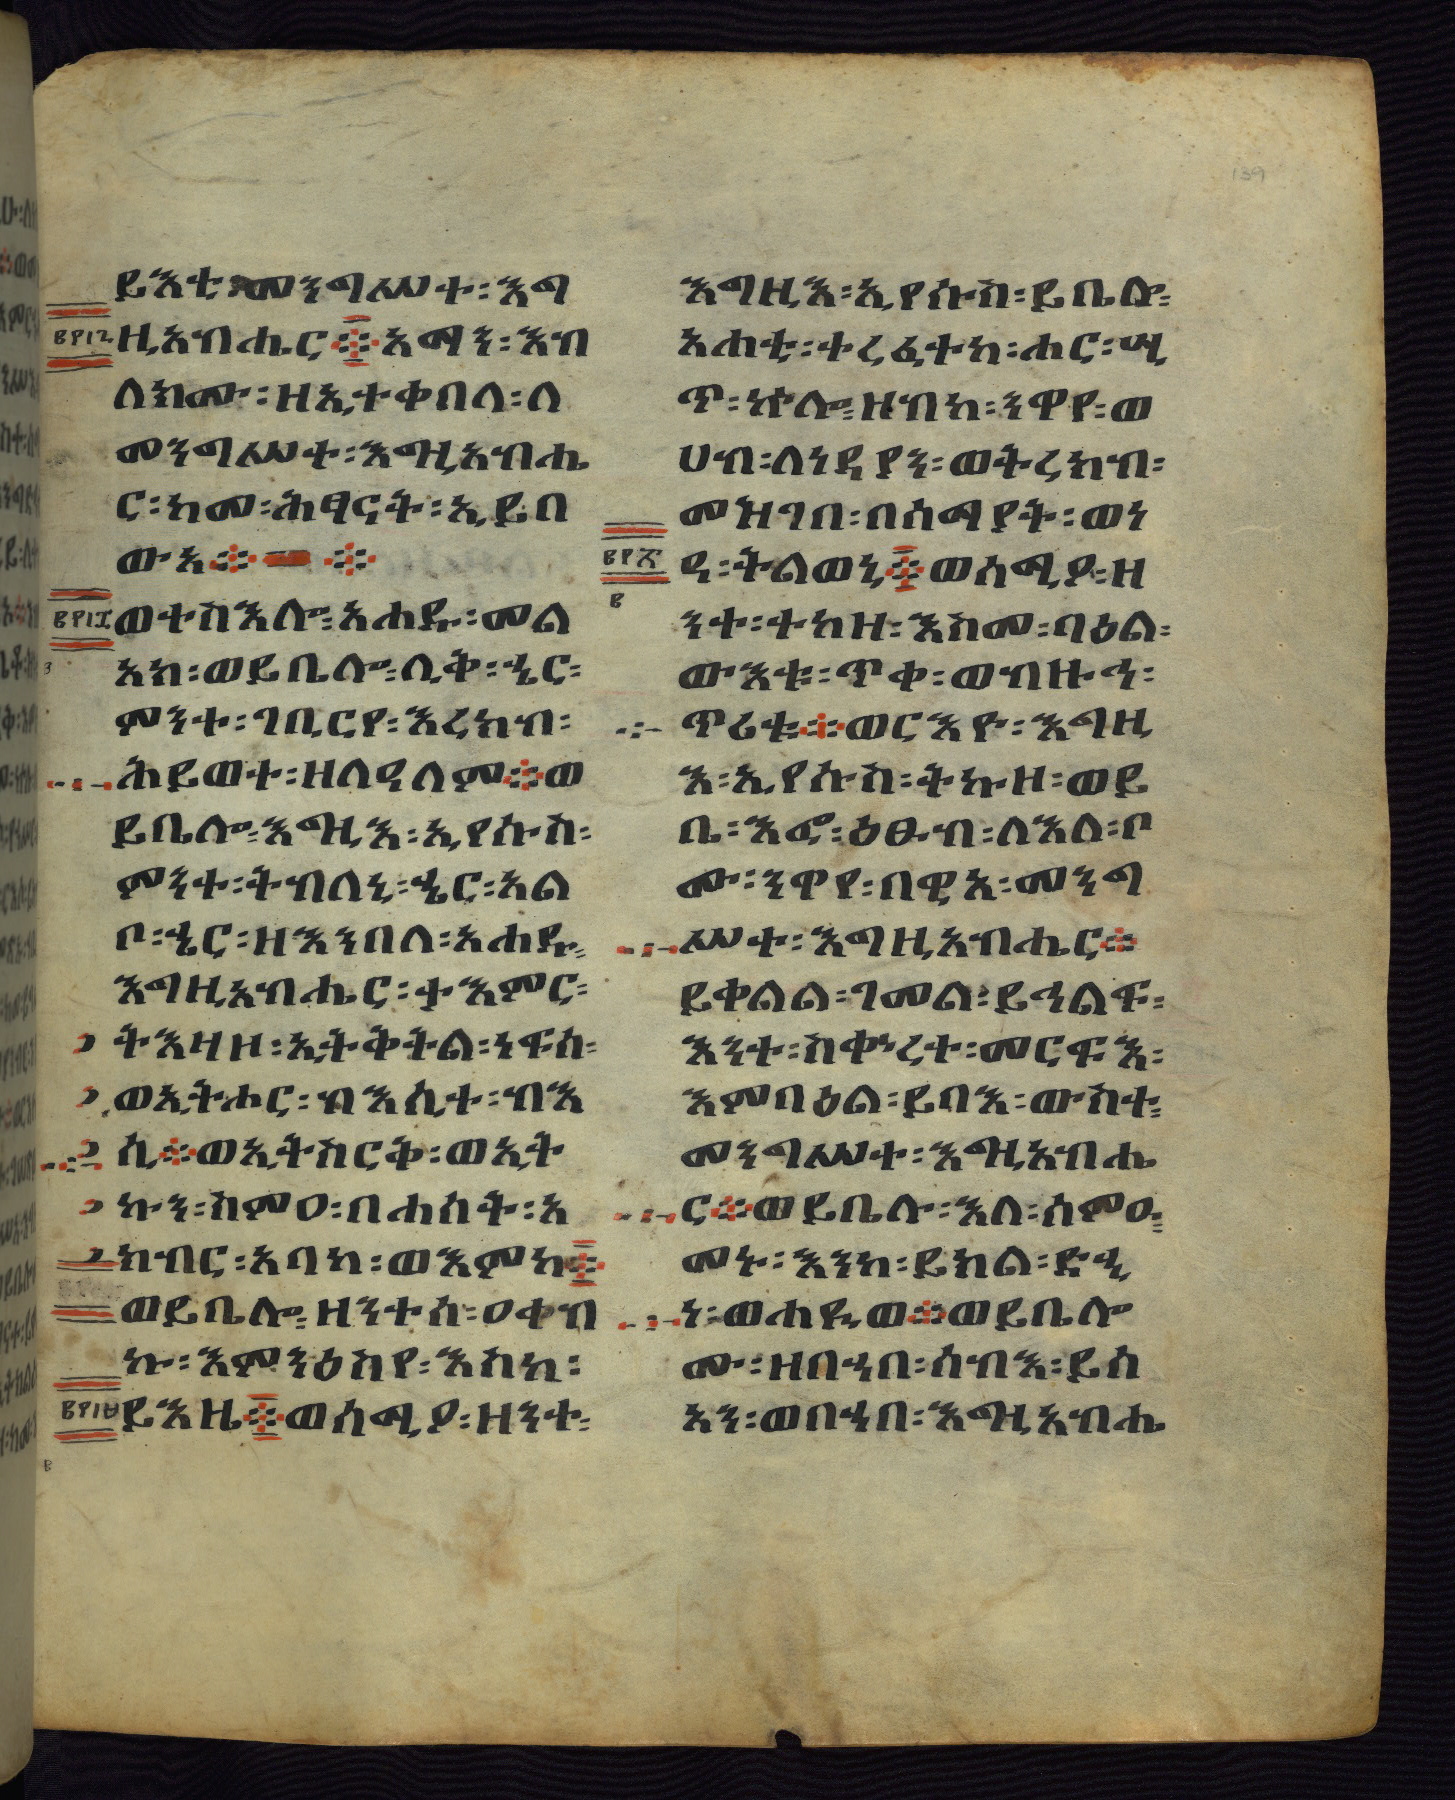 139
ይእቲ፡መንግሥተ፡እግ
ዚአብሔር፨አማን፡እብ
ለክሙ፡ዘኢተቀበላ፡ለ
መንግሥተ፡እግዚአብሔ
ር፡ከመ፡ሕፃናት፡ኢይበ
ውእ፨ ፨
ወተስእሎ፡አሐዱ፡መል
አክ፡ወይቤሎ፡ሊቅ፡ኄር፡
ምንተ፡ገቢርየ፡እረክብ፡
ሕይወተ፡ዘለዓለም፨ወ
ይቤሎ፡እግዚእ፡ኢየሱስ፡
ምንተ፡ትብለኒ፡ኄር፡አል
ቦ፡ኄር፡ዘእንበለ፡አሐዱ፡
እግዚአብሔር፡ተአምር፡
ትእዛዘ፡ኢትቅትል፡ነፍሰ፡
ወኢትሑር፡ብእሲተ፡ብእ
ሲ፨ወኢትስርቅ፡ወኢት
ኩን፡ስምዐ፡በሐሰት፡አ
ክብር፡አባከ፡ወእምከ፨
ወይቤሎ፡ዘንተሰ፡ዐቀብ
ኩ፡እምንዕስየ፡እስከ፡
ይእዜ፨ወሰሚዖ፡ዘንተ፡
እግዚእ፡ኢየሱስ፡ይቤሎ፡
አሐቲ፡ተረፈተከ፡ሑር፡ሢ
ጥ፡ኵሎ፡ዘብከ፡ንዋየ፡ወ
ሀብ፡ለነዳያን፡ወትረክብ፡
መዝገበ፡በሰማያት፡ወነ
ዓ፡ትልወኒ፨ወሰሚዖ፡ዘ
ንተ፡ተከዘ፡እስመ፡ባዕል፡
ውእቱ፡ጥቀ፡ወብዙኅ፡
ጥሪቱ፨ወርእዮ፡እግዚ
እ፡ኢየሱስ፡ትኩዘ፡ወይ
ቤ፡እፎ፡ዕፁብ፡ለእለ፡ቦ
ሙ፡ንዋየ፡በዊአ፡መንግ
ሥተ፡እግዚአብሔር፨
ይቀልል፡ገመል፡ይኅልፍ፡
እንተ፡ስቍረተ፡መርፍእ፡
እምባዕል፡ይባእ፡ውስተ፡
መንግሥተ፡እግዚአብሔ
ር፨ወይቤሉ፡እለ፡ሰምዑ፡
መኑ፡እንከ፡ይክል፡ድኂ
ነ፡ወሐዪወ፨ወይቤሎ
ሙ፡ዘበኀበ፡ሰብእ፡ይሰ
አን፡ወበኀበ፡እግዚአብሔ